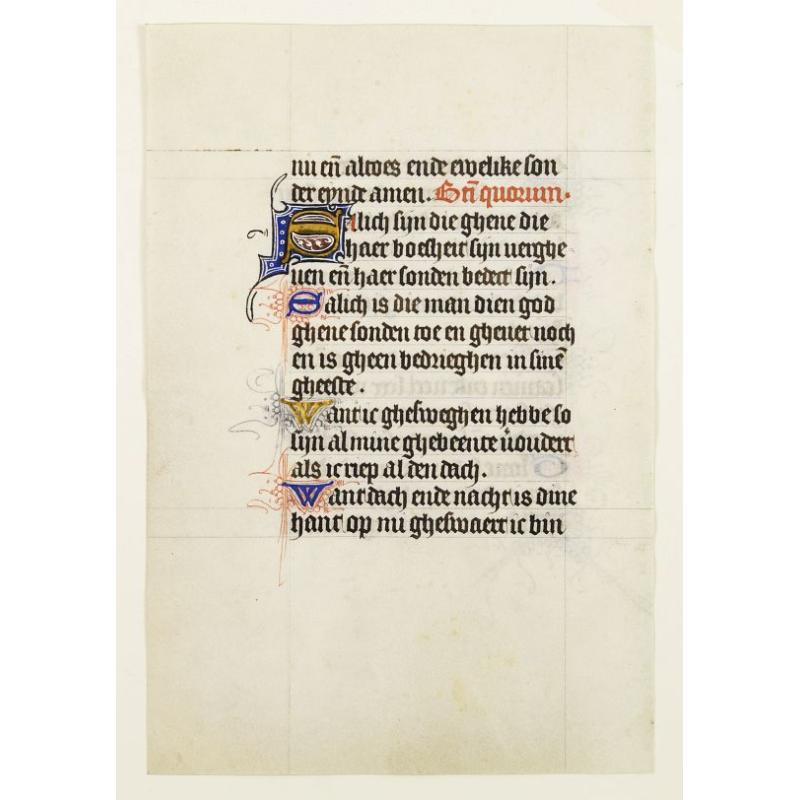 nu en̄ altoes ende ewelike son
der eynde amen. Bt̄i quorum.
Salich sijn die ghene die
haer boesheit sijn uerghe
uen en̄ haer sonden bedect sijn.
Salich is die man dien god
ghene sonden toe en gheuet noch
en is gheen bedrieghen in sinē
gheeste.
Want ic ghesweghen hebbe so
sijn al mine ghebeente v̄oudert
als ic riep al den dach.
Want dach ende nacht is dine
hant op mi gheswaert ic bin